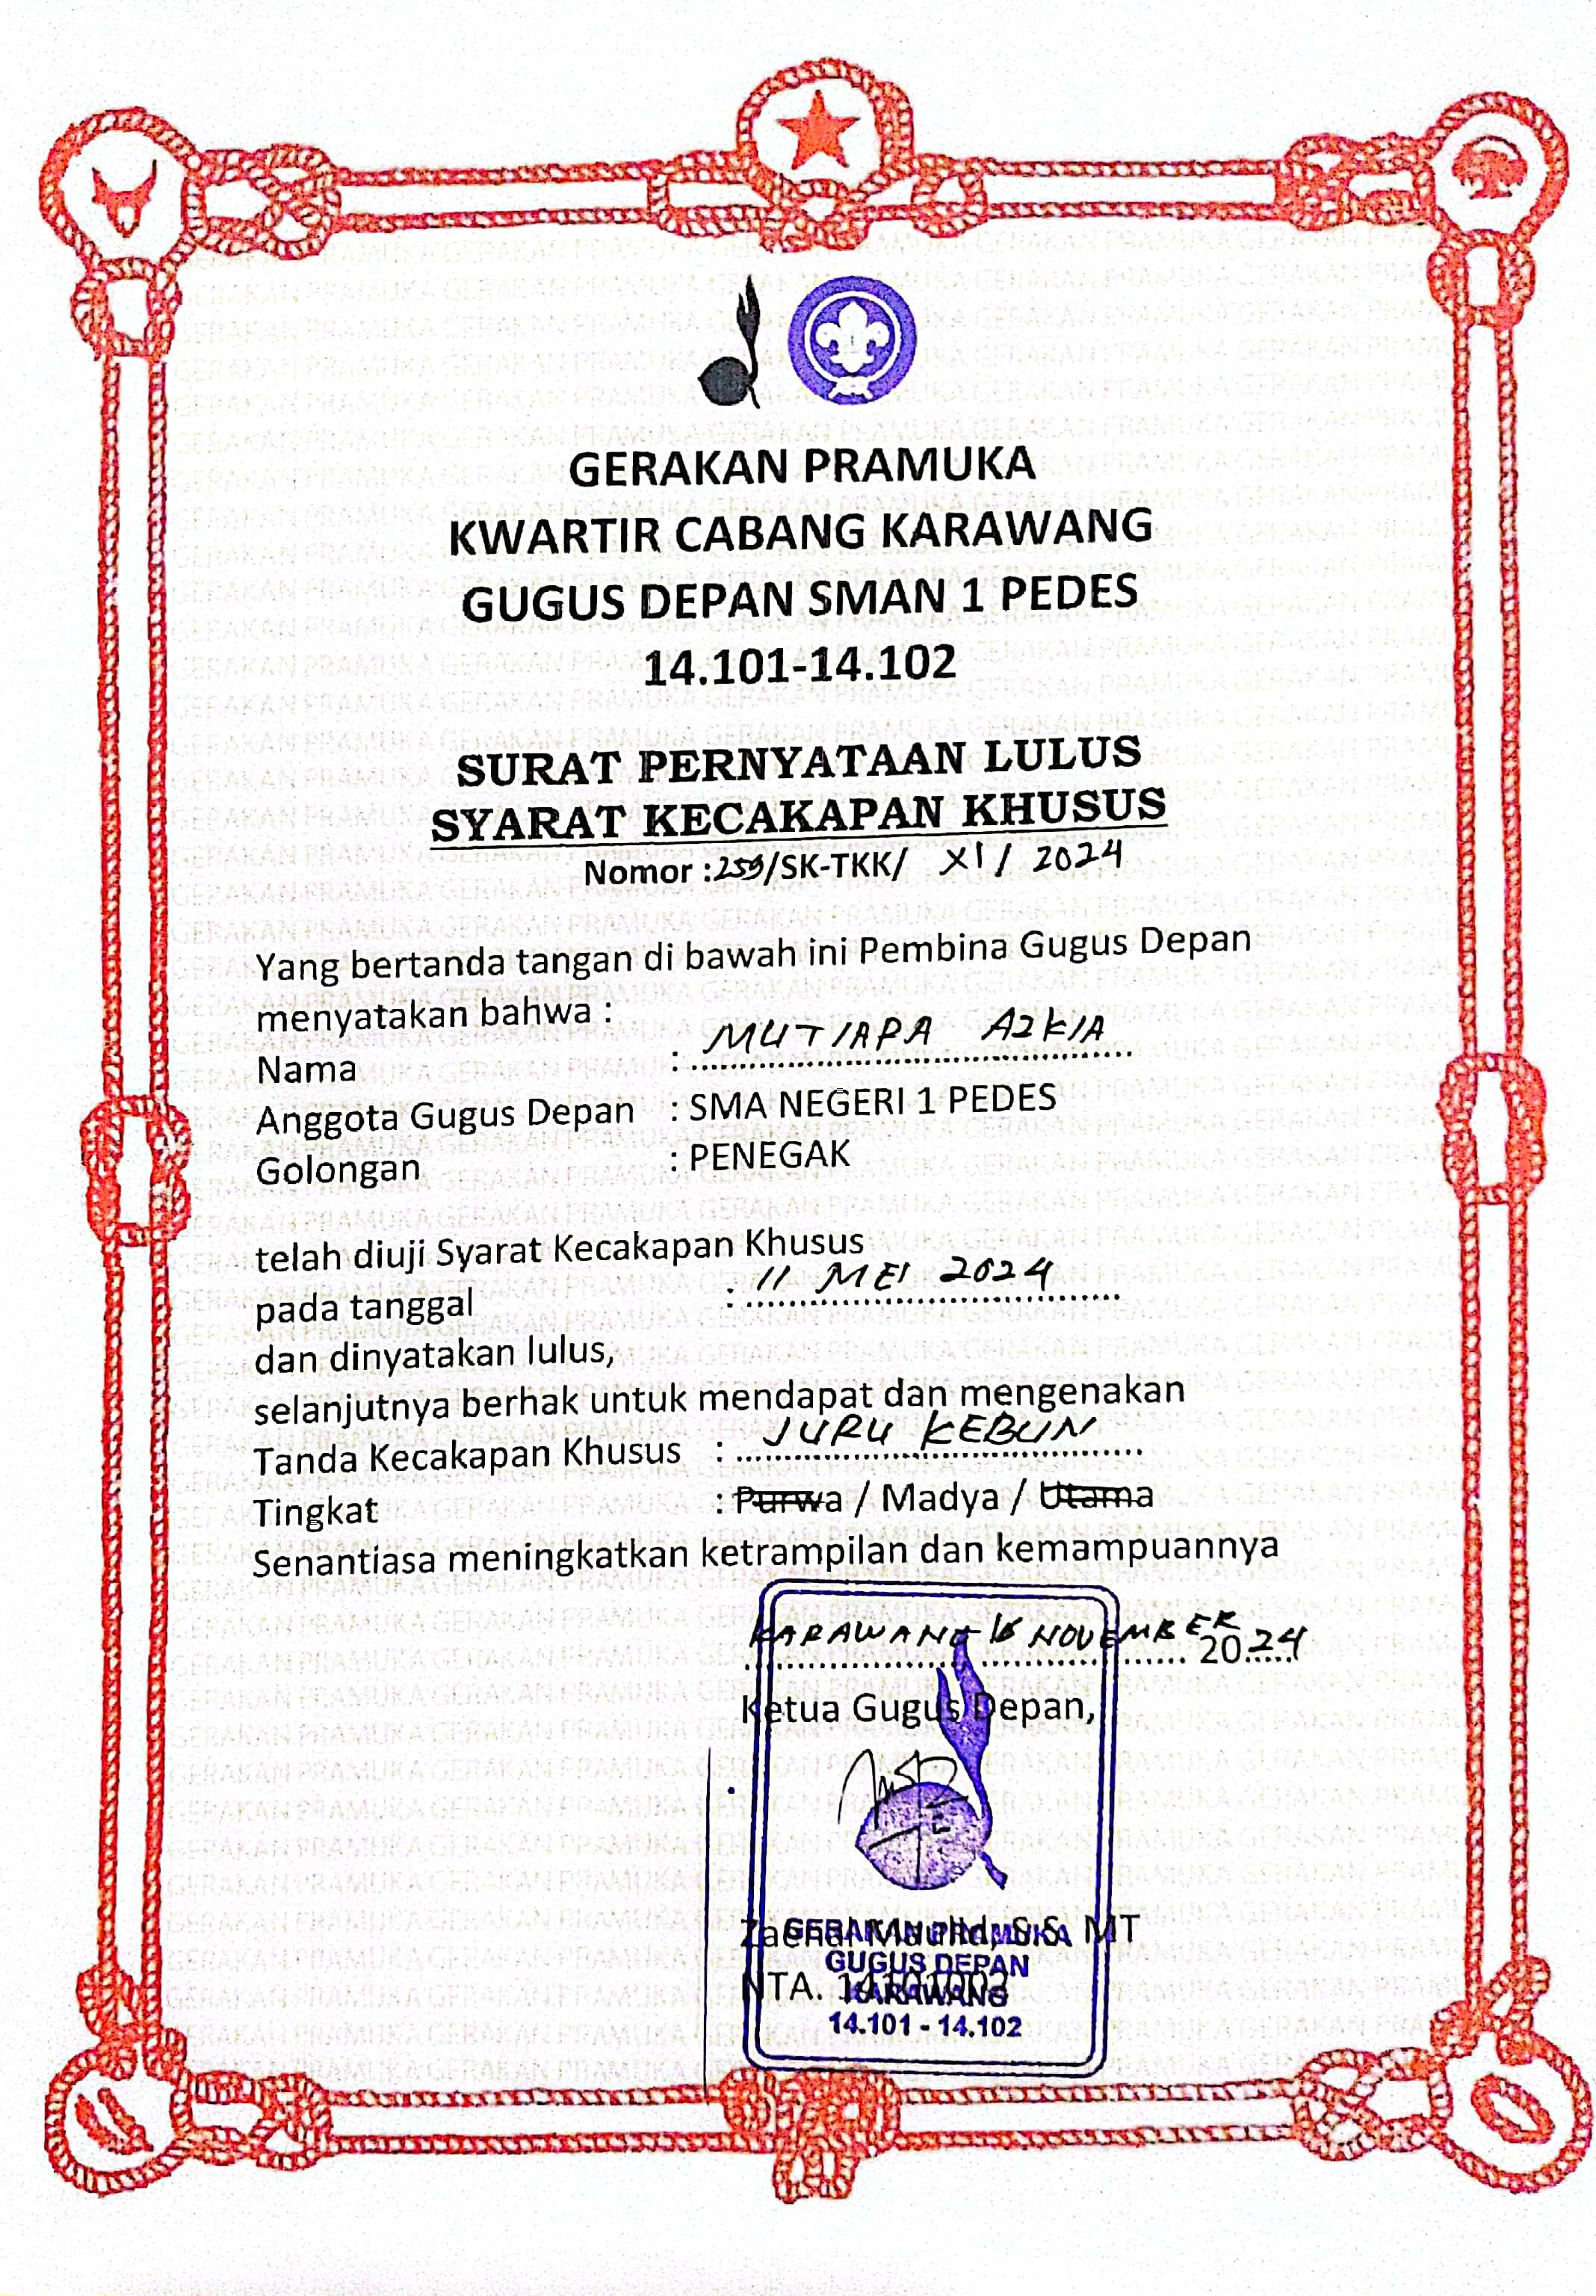 GERAKAN PRAMUKA
KWARTIR CABANG KARAWANG
GUGUS DEPAN SMAN 1 PEDES
14.101-14.102
SURAT PERNYATAAN LULUS
SYARAT KECAKAPAN KHUSUS
Nomor :259/SK-TKK/ XI / 2024
Yang bertanda tangan di bawah ini Pembina Gugus Depan
menyatakan bahwa :
Nama : MUTIARA AZKIA
Anggota Gugus Depan : SMA NEGERI 1 PEDES
Golongan : PENEGAK
telah diuji Syarat Kecakapan Khusus
pada tanggal : 11 MEI 2024
dan dinyatakan lulus,
selanjutnya berhak untuk mendapat dan mengenakan
Tanda Kecakapan Khusus : JURU KEBUN
Tingkat : Purwa / Madya / Utama
Senantiasa meningkatkan ketrampilan dan kemampuannya
KARAWANG 16 NOVEMBER 2024
Ketua Gugus Depan,
Zaenal Maulid, S.S. MT
NTA.
GERAKAN PRAMUKA
GUGUS DEPAN
KARAWANG
14.101 - 14.102